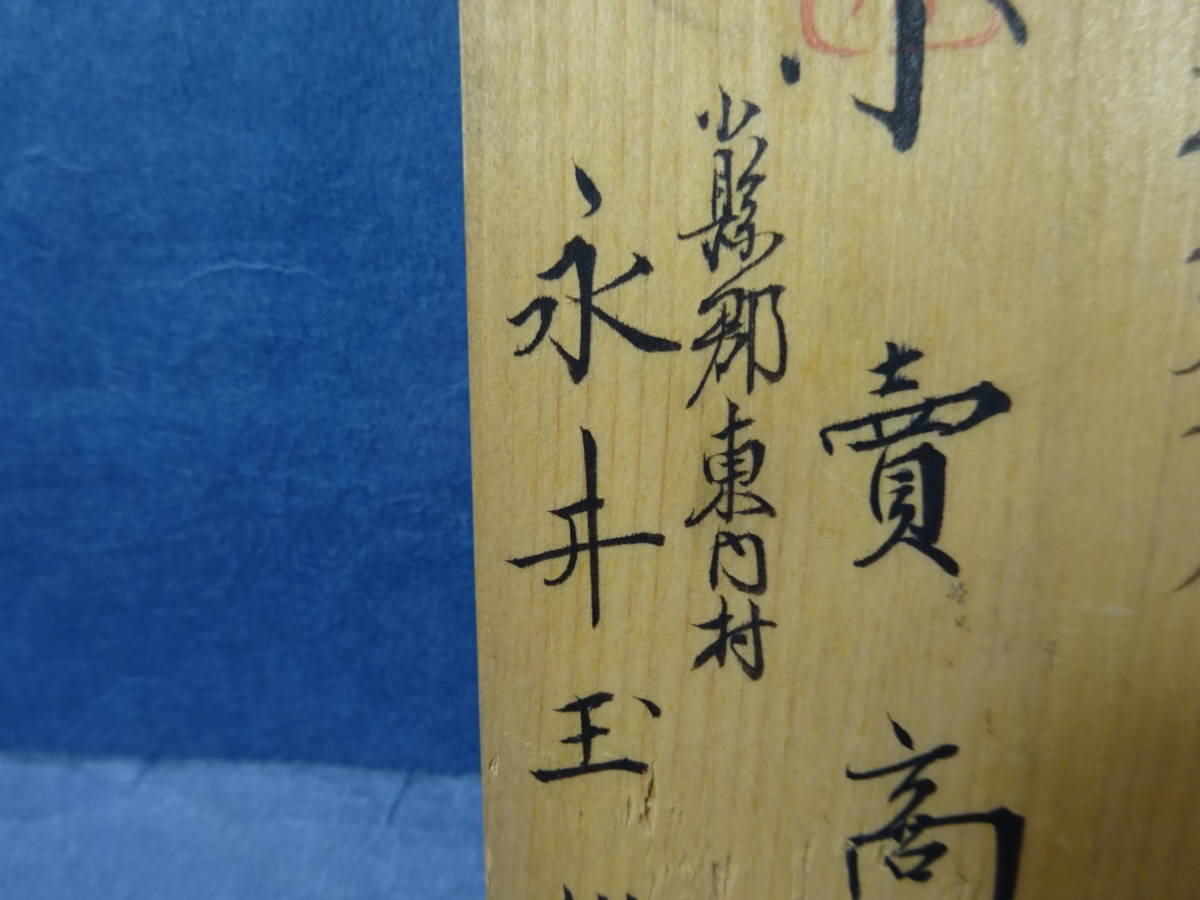 賣商
小縣郡東内村
永井玉